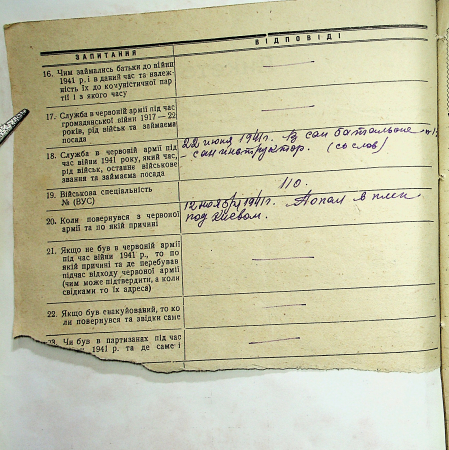 ЗАПИТАННЯ
ВІДПОВІДІ
16. Чим займались батьки до війни
1941 р. і в даний час та належ-
ність їх до комуністичної пар
тії і з якого часу
17. Служба в червоній армії під час
громадянської війни 1917—22
років, рід військ та займаєма
посада
18. Служба в червоній армії під
час війни 1941 року, який час,
рід військ, останнє військове
звання та займаєма посада
22 июня 1941 г. сан батальоне
- сан инструктор. (со слов)
19. Військова спеціальність
№ (ВУС)
110.
20. Коли повернувся з червоної
армії та по якій причині
12 ноября 1941 г. Попал в плен
под Киевом.
21. Якщо не був в червоній армії
під час війни 1941 р., то по
якій причині та де перебував
підчас відходу червоної армії
(чим може підтвердити, а коли
свідками то їх адреса)
22. Якщо був евакуйований, то ко
ли повернувся та звідки саме
23. Чи був в партизанах під час
1941 р. та де саме і